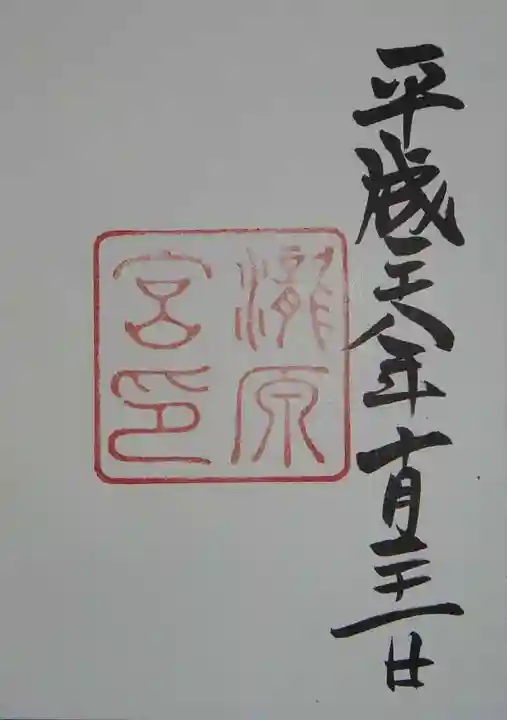 平成二十八年十月二十一日
瀧原
宮印